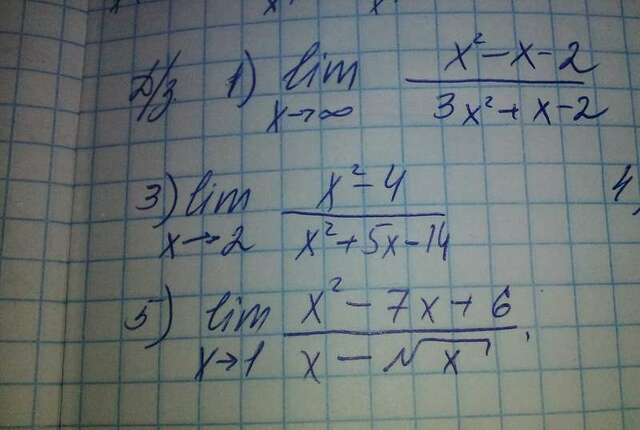 Д/з. 1) lim x→∞ (x² - x - 2)/(3x² + x - 2)
3) lim x→2 (x² - 4)/(x² + 5x - 14)
4)
5) lim x→1 (x² - 7x + 6)/(x - √x).